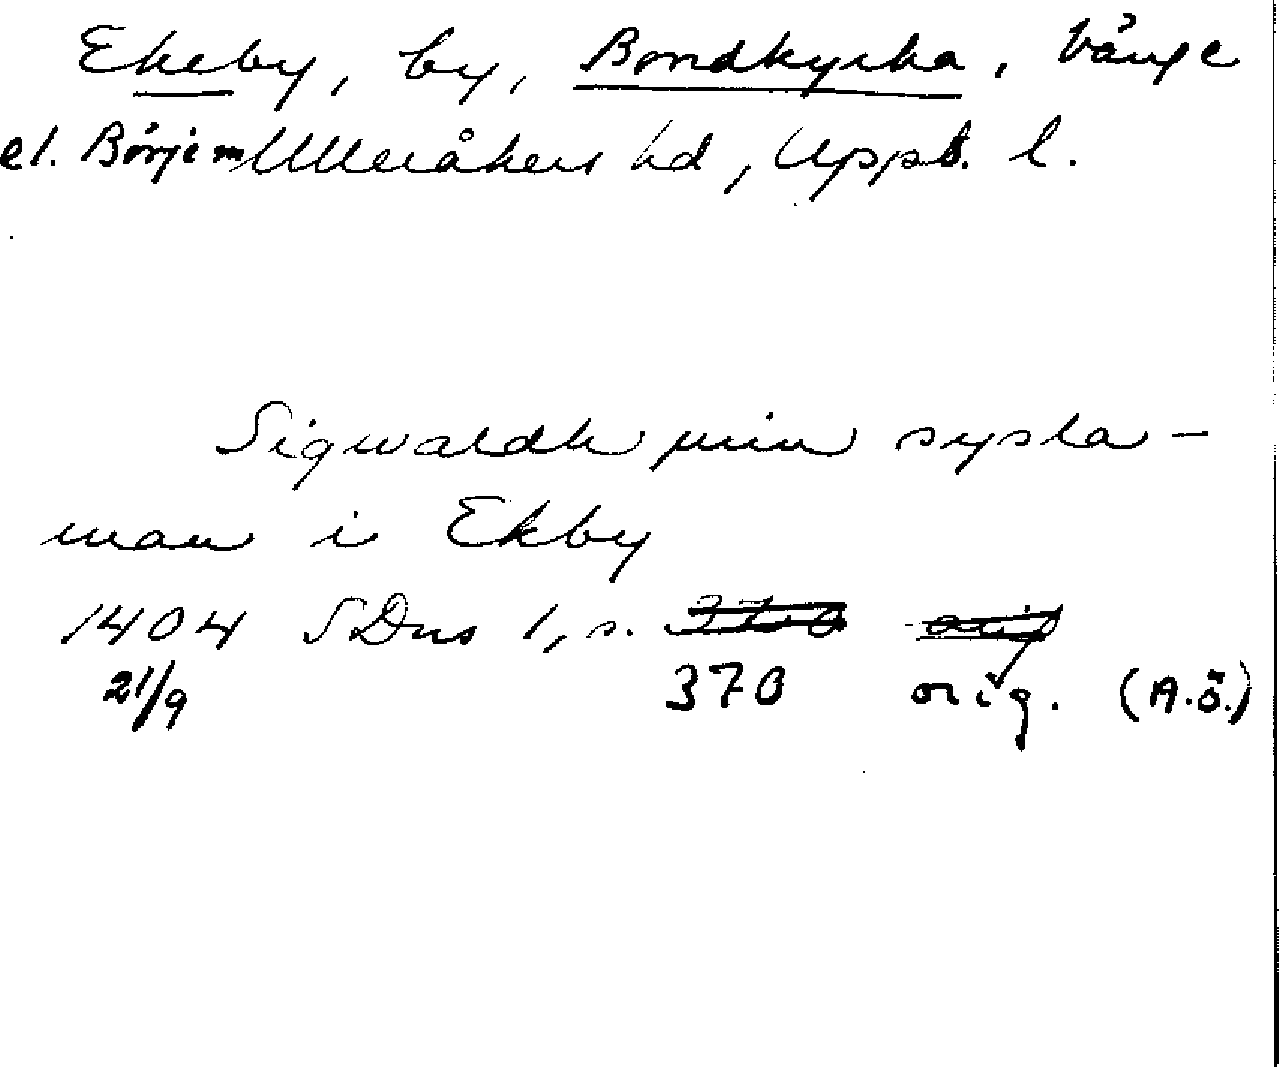 Ekeby, by, Bondkyrka, Vänge
el. Börje sn Ulleråkers hd, Upps. l.
Sigwaldh min sysla-
man i Ekby
1404 SDns 1, s. 370 orig
21/9 370 orig. (A.Ö.)